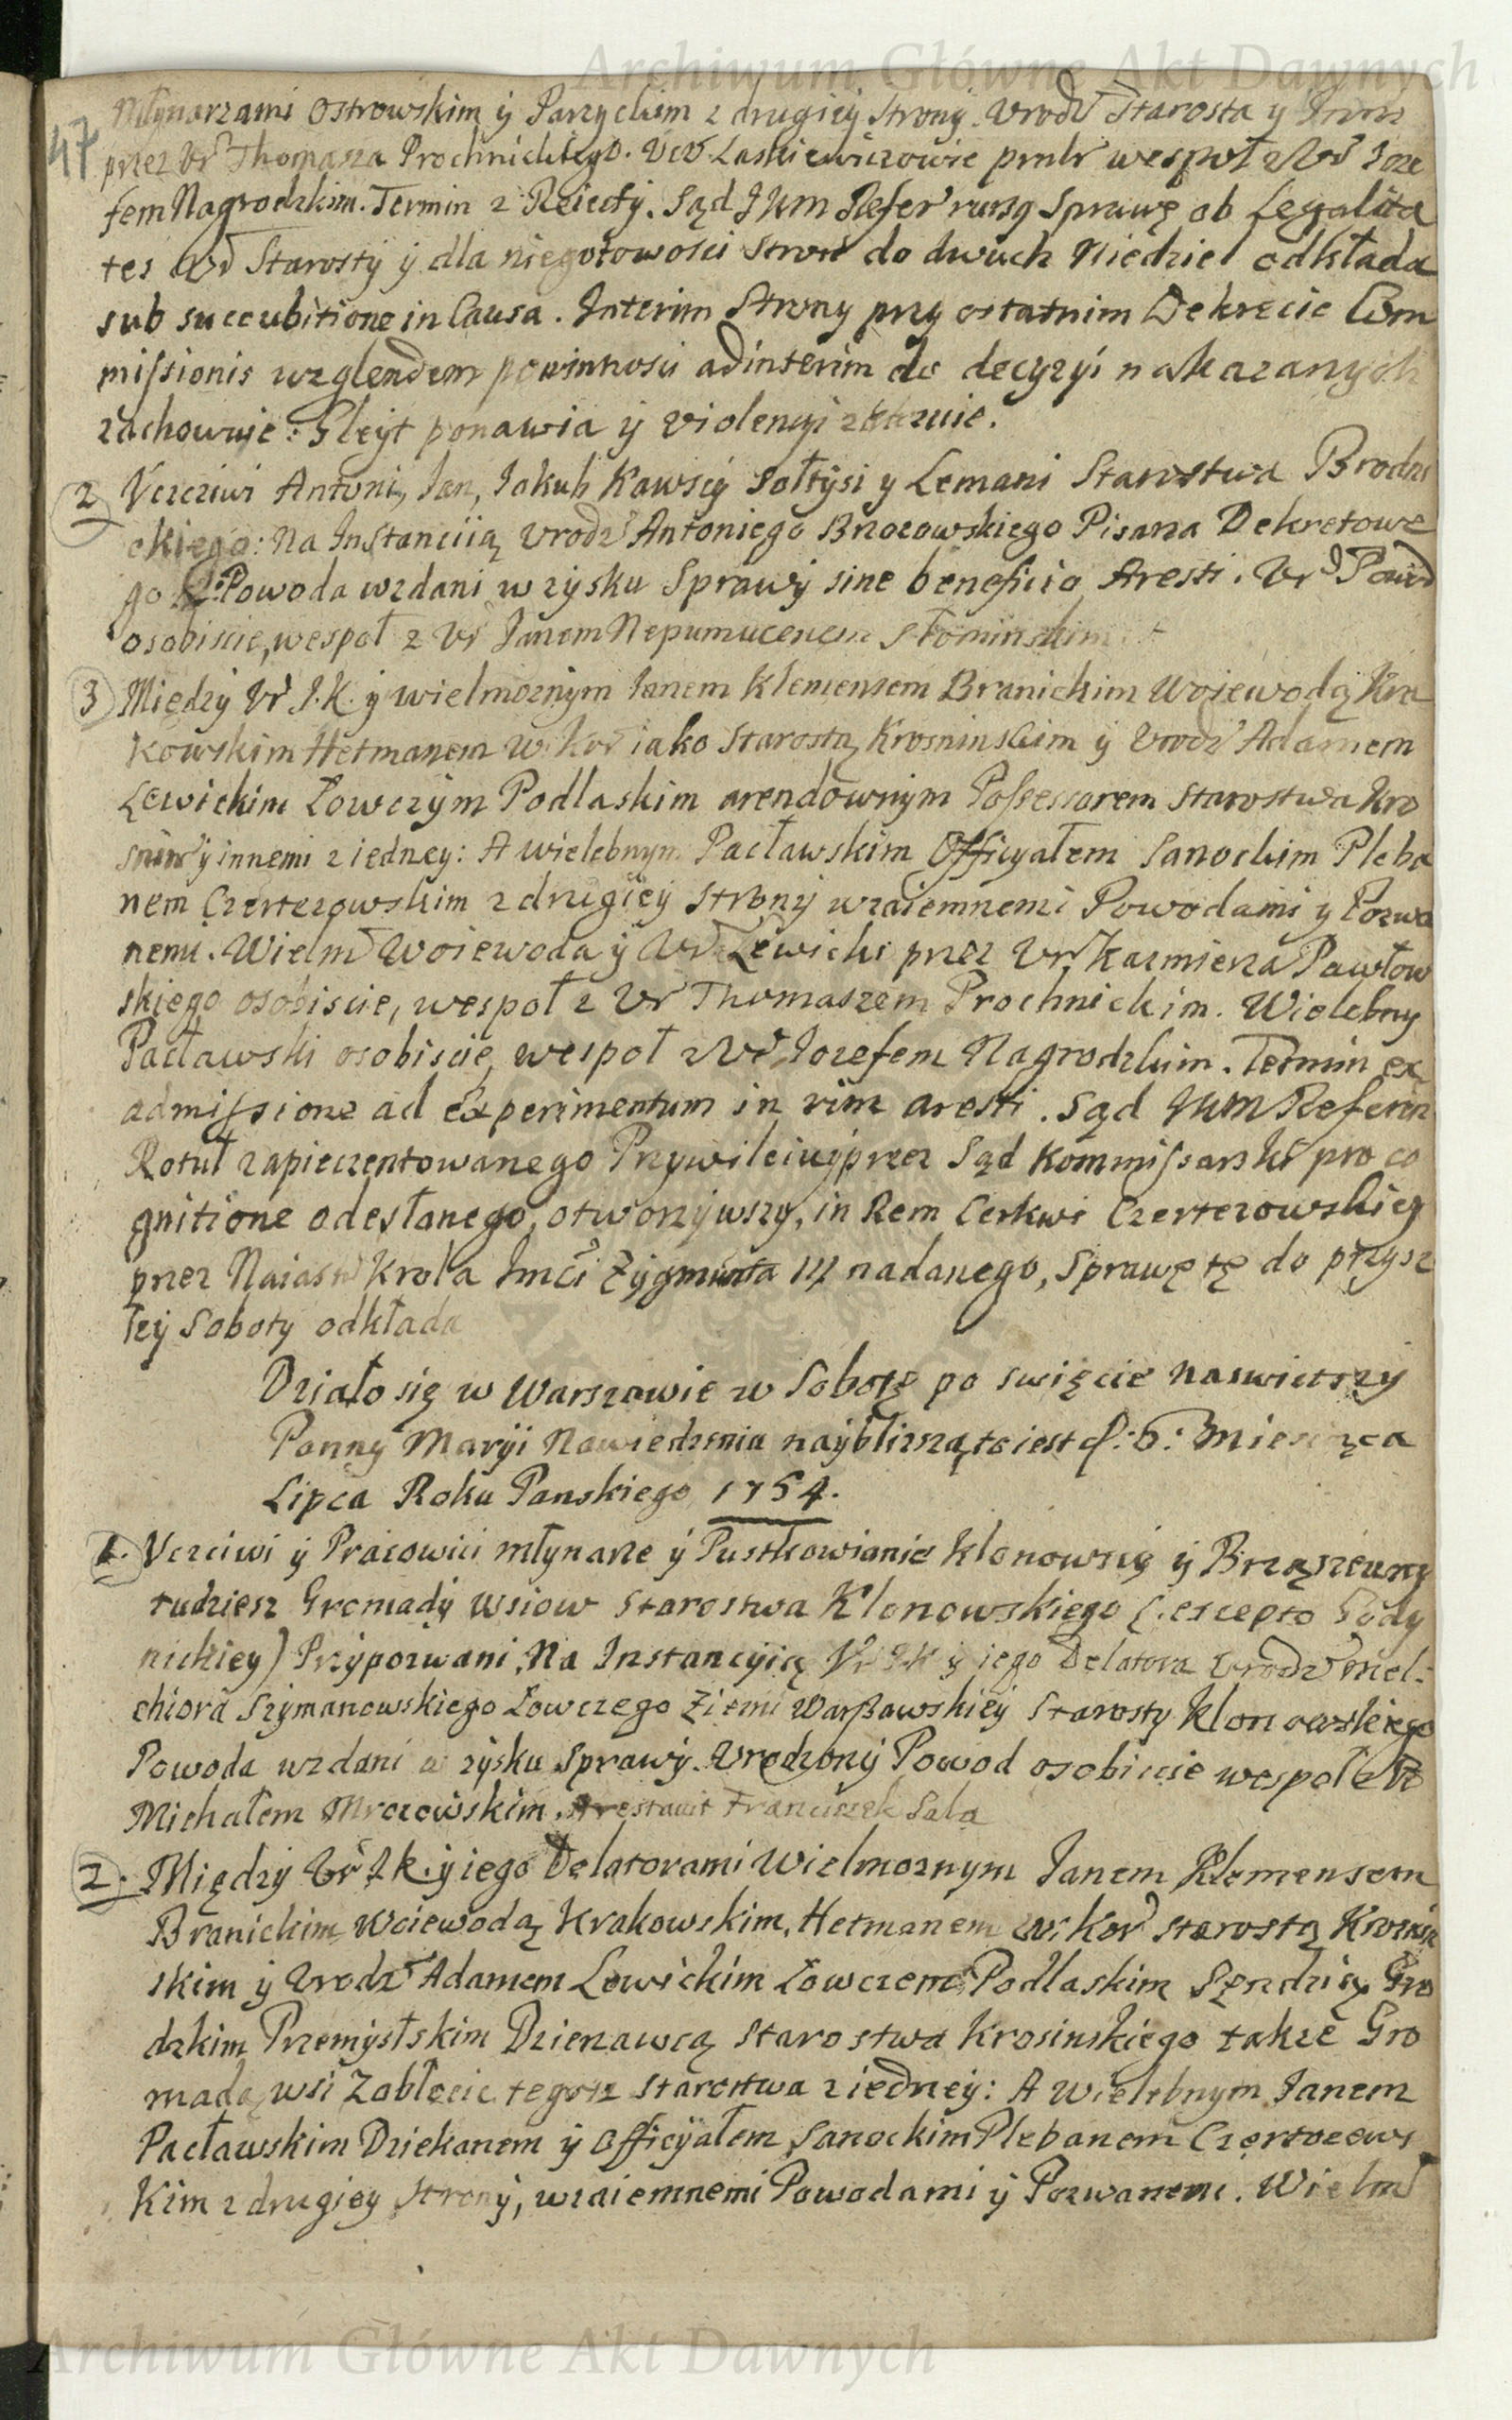 Archiwum Główne Akt Dawnych
Młynarzami Ostrowskim ÿ Parzyckim z drugiey Strony. Urodz Starosta y Inni
47 przez Ur Thomasza Prochnickiego. Ucz Laskiewiczowie pmlr wespoł z Ur Joze
fem Nagrodzkim. Termin z Reiecty. Sąd JKM Refer ninsą Sprawę ob Legalita
tes Ur Starosty ÿ dla niegotowosci Stron do dwuch Niedziel odkłada
sub succubitione in Causa. Interim Strony przy ostatnim Dekrecie Com
missionis wzglendem powinnosci adinterim do decyzyi nakazanych
zachowuje: Gleyt ponawia ÿ violencyi zakazuie.
2 Uczciwi Antoni, Jan, Jakub Kawscy Sołtysi y Lemani Starostwa Brodni
ckiego: Na Instanciią Urodz Antoniego Brozowskiego Pisarza Dekretowe
go Powoda wzdani w zysku Sprawy sine beneficio Aresti. Ur Powod
osobiscie, wespoł z Ur Janem Nepumucenem Słominskim
3 Między Ur I.K. ÿ wielmoznym Janem Klemensem Branickim Woiewodą Kra
kowskim Hetmanem W. Kor iako Starostą Krosninskim ÿ Urodz Adamem
Lewickim Łowczym Podlaskim arendownym Possessorem Starostwa Kro
snin ÿ innemi z iedney: A wielebnym Pacławskim Officyałem Sanockim Pleba
nem Czertezowskim z drugiey Strony wzaiemnemi Powodami y Pozwa
nemi. Wielm Woiewoda ÿ Ur Lewicki przez Ur Kazmierza Pawłow
skiego osobiscie, wespoł z Ur Thomaszem Prochnickim. Wielebny
Pacławski osobiscie, wespoł z Ur Jozefem Nagrodzkim. Termin ex
admissione ad Experimentum in vim aresti. Sąd JKM Referen
Rotuł zapieczentowanego Przywileiu ÿ przez Sąd Kommissarski pro co
gnitione odesłanego, otworzywszy, in Rem Cerkwi Czertezowskiey
przez Naiasn Krola Jmci Zygmunta III nadanego, Sprawę tę do przysz
łey Soboty odkłada
Działo się w Warszawie w Sobotę po swięcie naswietszy
Panny Maryi Nawiedzenia naybliszą to iest d: 6: Miesiąca
Lipca Roku Panskiego 1754.
1. Uczciwi ÿ Pracowici młynarze ÿ Pustkowianie Klonowscy ÿ Brząszewscy
tudziesz Gromady wsiow Starostwa Klonowskiego (excepto Gody
nickiey) Przypozwani, Na Instancyią Ur I.K ÿ iego Delatora Urodz Mel:
chiora Szymanowskiego Łowczego Ziemi Warszawskiey Starosty Klonowskiego
Powoda wzdani w zysku Sprawy. Urodzony Powod osobiscie wespoł z Ur
Michałem Mrozowskim. Arestavit Franciszek Sala
2. Między Ur I.K. ÿ iego Delatorami Wielmoznym Janem Klemensem
Branickim, Woiewodą Krakowskim, Hetmanem W. Kor Starostą Krosnin
skim ÿ Urodz Adamem Lewickim Łowczem Podlaskim Sęndzią Gro
dzkim Przemyslskim Dzierzawcą Starostwa Krosinskiego takze Gro
madą wsi Zabłocie tegosz Starostwa z iedney: A Wielebnym Janem
Pacławskim Dziekanem ÿ Officyałem Sanockim Plebanem Czertezows
kim z drugiey Strony, wzaiemnemi Powodami ÿ Pozwanemi. Wielm
Archiwum Główne Akt Dawnych